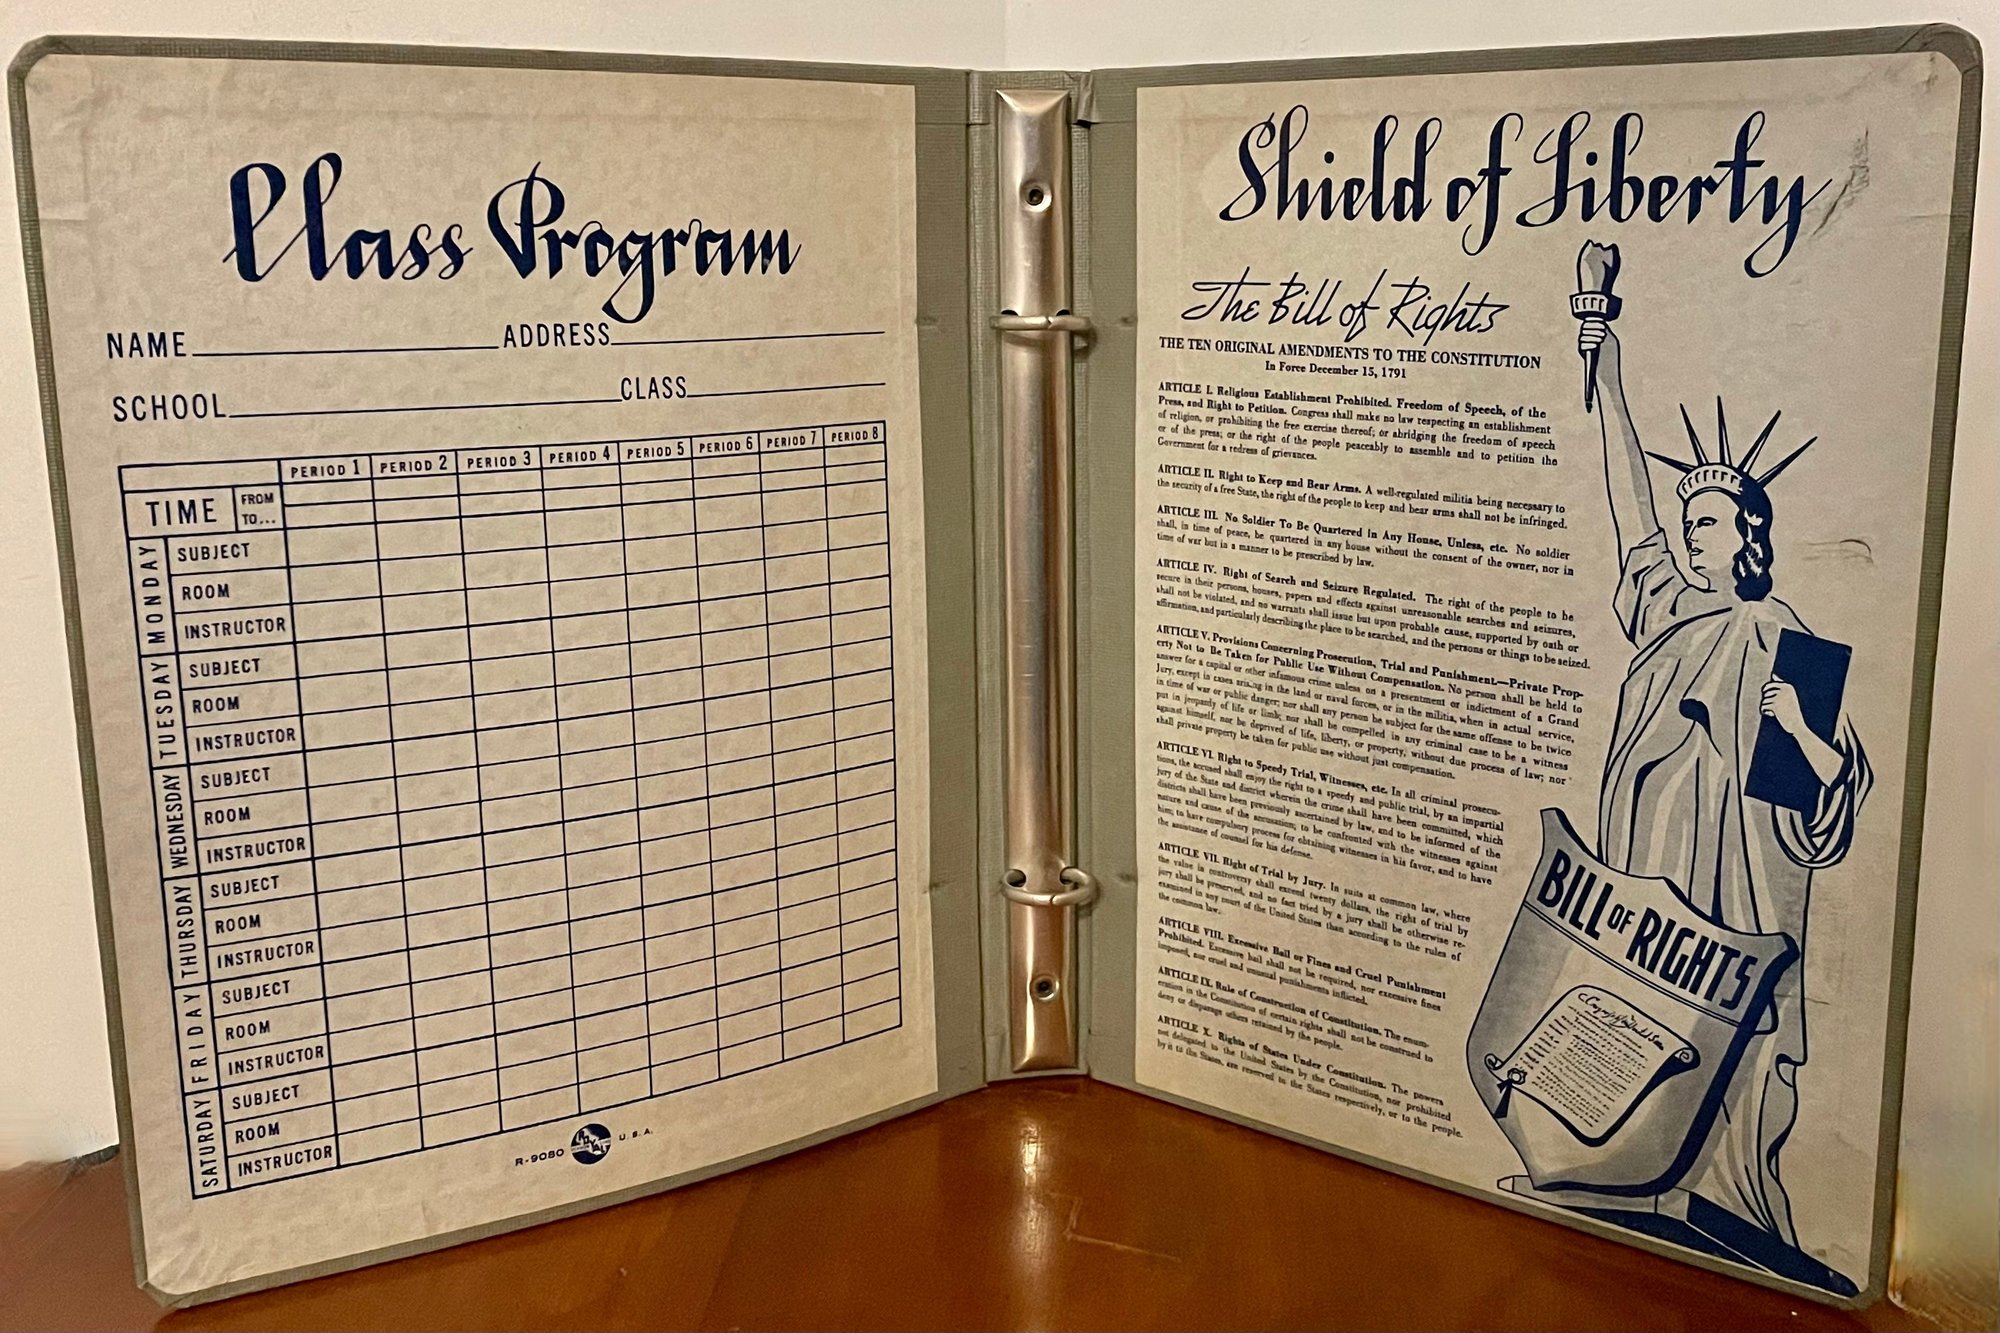 Class Program
NAME ADDRESS
SCHOOL CLASS
PERIOD 1 PERIOD 2 PERIOD 3 PERIOD 4 PERIOD 5 PERIOD 6 PERIOD 7 PERIOD 8
TIME FROM
TO...
MONDAY
SUBJECT
ROOM
INSTRUCTOR
TUESDAY
SUBJECT
ROOM
INSTRUCTOR
WEDNESDAY
SUBJECT
ROOM
INSTRUCTOR
THURSDAY
SUBJECT
ROOM
INSTRUCTOR
FRIDAY
SUBJECT
ROOM
INSTRUCTOR
SATURDAY
SUBJECT
ROOM
INSTRUCTOR
R-9080 U.S.A.
Shield of Liberty
The Bill of Rights
THE TEN ORIGINAL AMENDMENTS TO THE CONSTITUTION
In Force December 15, 1791
ARTICLE I. Religious Establishment Prohibited. Freedom of Speech, of the
Press, and Right to Petition. Congress shall make no law respecting an establishment
of religion, or prohibiting the free exercise thereof; or abridging the freedom of speech
or of the press; or the right of the people peaceably to assemble and to petition the
Government for a redress of grievances.
ARTICLE II. Right to Keep and Bear Arms. A well-regulated militia being necessary to
the security of a free State, the right of the people to keep and bear arms shall not be infringed.
ARTICLE III. No Soldier To Be Quartered in Any House, Unless, etc. No soldier
shall, in time of peace, be quartered in any house without the consent of the owner, nor in
time of war but in a manner to be prescribed by law.
ARTICLE IV. Right of Search and Seizure Regulated. The right of the people to be
secure in their persons, houses, papers and effects against unreasonable searches and seizures,
shall not be violated, and no warrants shall issue but upon probable cause, supported by oath or
affirmation, and particularly describing the place to be searched, and the persons or things to be seized.
ARTICLE V. Provisions Concerning Prosecution, Trial and Punishment.—Private Prop-
erty Not to Be Taken for Public Use Without Compensation. No person shall be held to
answer for a capital or other infamous crime unless on a presentment or indictment of a Grand
Jury, except in cases arising in the land or naval forces, or in the militia, when in actual service,
in time of war or public danger; nor shall any person be subject for the same offense to be twice
put in jeopardy of life or limb; nor shall be compelled in any criminal case to be a witness
against himself, nor be deprived of life, liberty, or property, without due process of law; nor
shall private property be taken for public use without just compensation.
ARTICLE VI. Right to Speedy Trial, Witnesses, etc. In all criminal prosecu-
tions, the accused shall enjoy the right to a speedy and public trial, by an impartial
jury of the State and district wherein the crime shall have been committed, which
districts shall have been previously ascertained by law, and to be informed of the
nature and cause of the accusation; to be confronted with the witnesses against
him; to have compulsory process for obtaining witnesses in his favor, and to have
the assistance of counsel for his defense.
ARTICLE VII. Right of Trial by Jury. In suits at common law, where
the value in controversy shall exceed twenty dollars, the right of trial by
jury shall be preserved, and no fact tried by a jury shall be otherwise re-
examined in any court of the United States than according to the rules of
the common law.
ARTICLE VIII. Excessive Bail or Fines and Cruel Punishment
Prohibited. Excessive bail shall not be required, nor excessive fines
imposed, nor cruel and unusual punishments inflicted.
ARTICLE IX. Rule of Construction of Constitution. The enum-
eration in the Constitution of certain rights shall not be construed to
deny or disparage others retained by the people.
ARTICLE X. Rights of States Under Constitution. The powers
not delegated to the United States by the Constitution, nor prohibited
by it to the States, are reserved to the States respectively, or to the people.
BILL OF RIGHTS